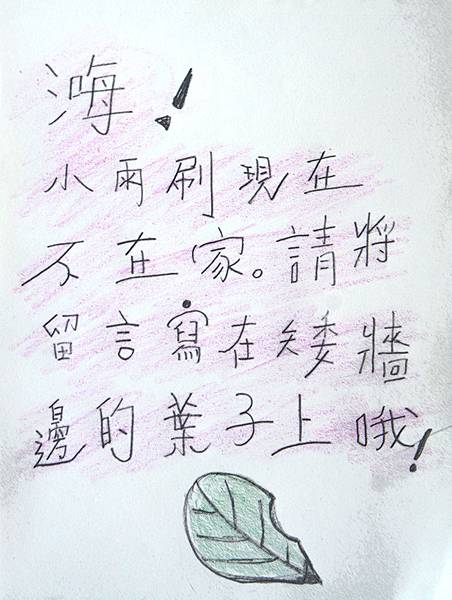 海!
小雨刷現在
不在家。請將
留言寫在矮牆
邊的葉子上哦!